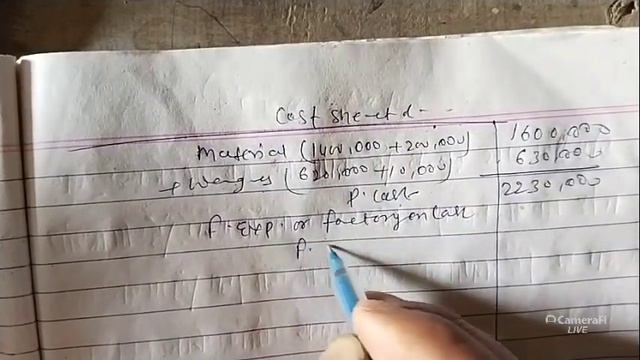 Cost sheet
Material (1400,000 + 200,000) 1600,000
+ Wages (620,000 + 10,000) 630,000
P. Cost 2230,000
F. Exp. or factory on Cost
P.
CameraFi
LIVE